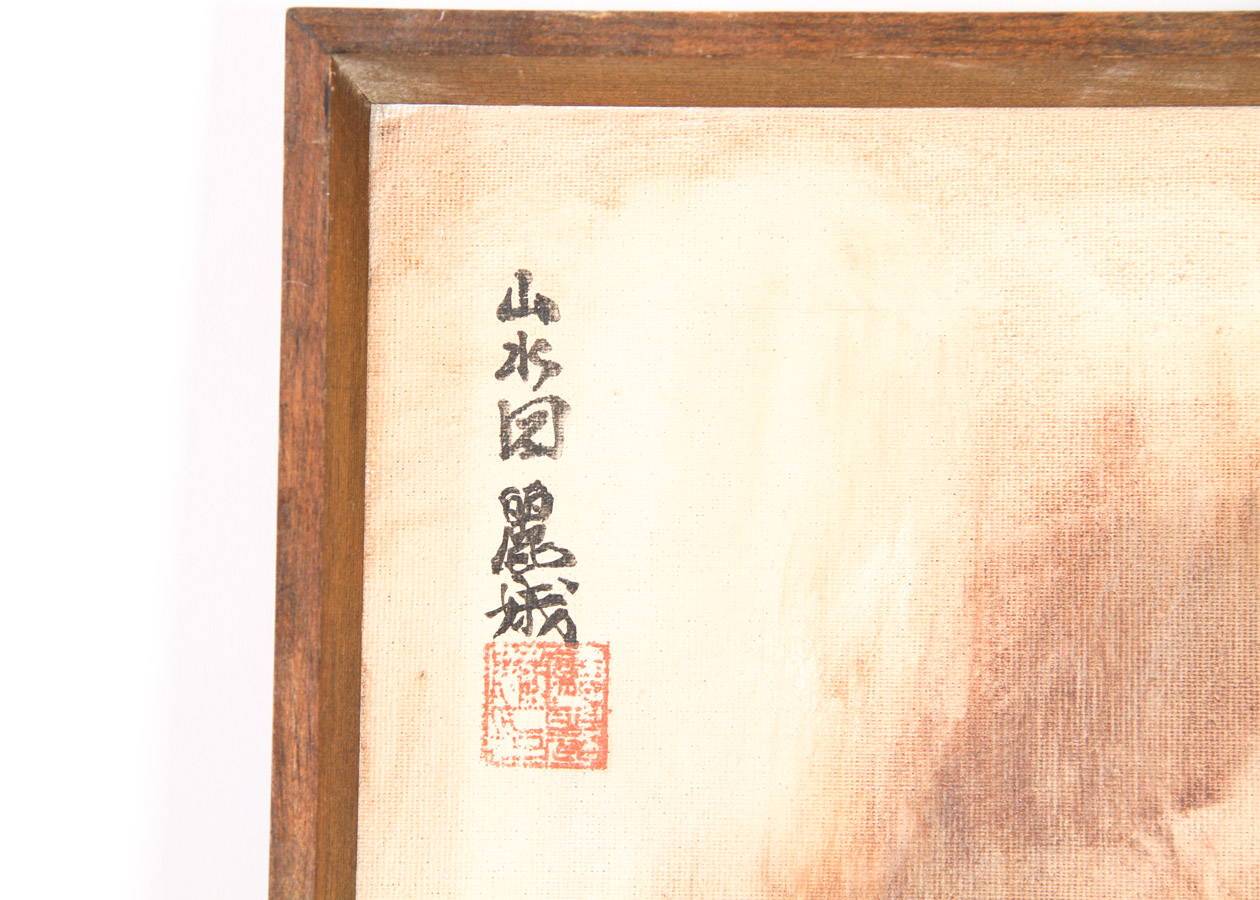 山水図 麗娥